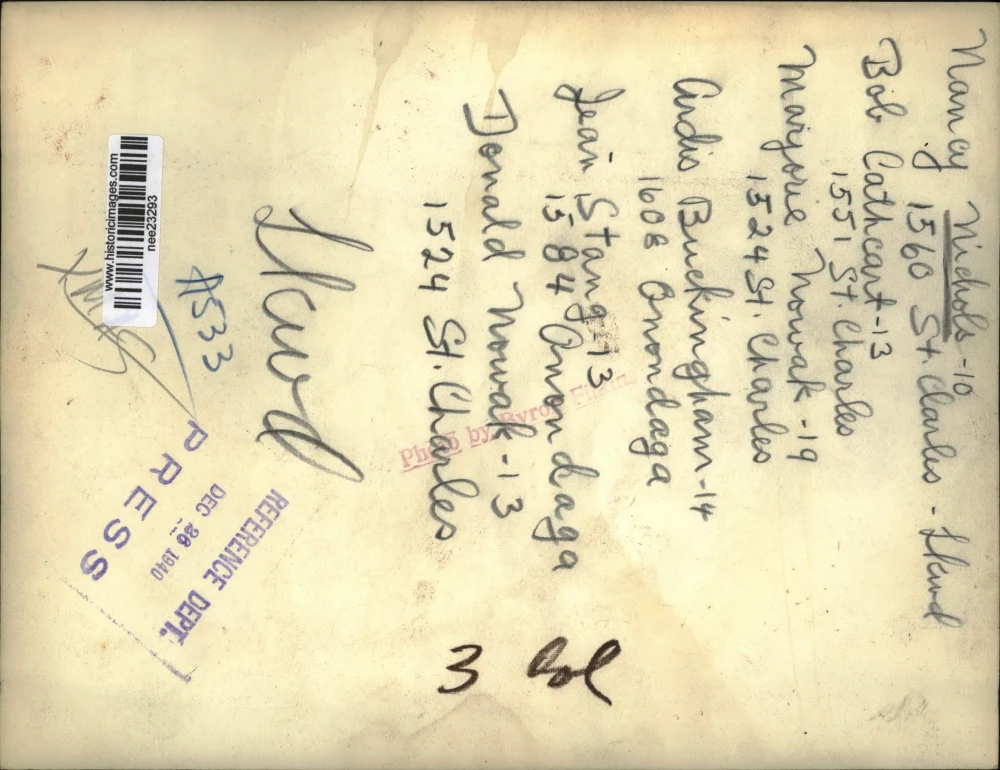 Nancy Nichols -10
1560 St Charles - Lkwd
Bob Cathcart -13
1551 St Charles
Marjorie Nowak -19
1524 St. Charles
Ardis Buckingham -14
1608 Onondaga
Jean Stang -13
1584 Onondaga
Donald Nowak -13
1524 St. Charles
Photo by Byron
Lkwd
A533
www.historicimages.com
nee23293
REFERENCE DEPT.
DEC 26 1940
PRESS
3 Col